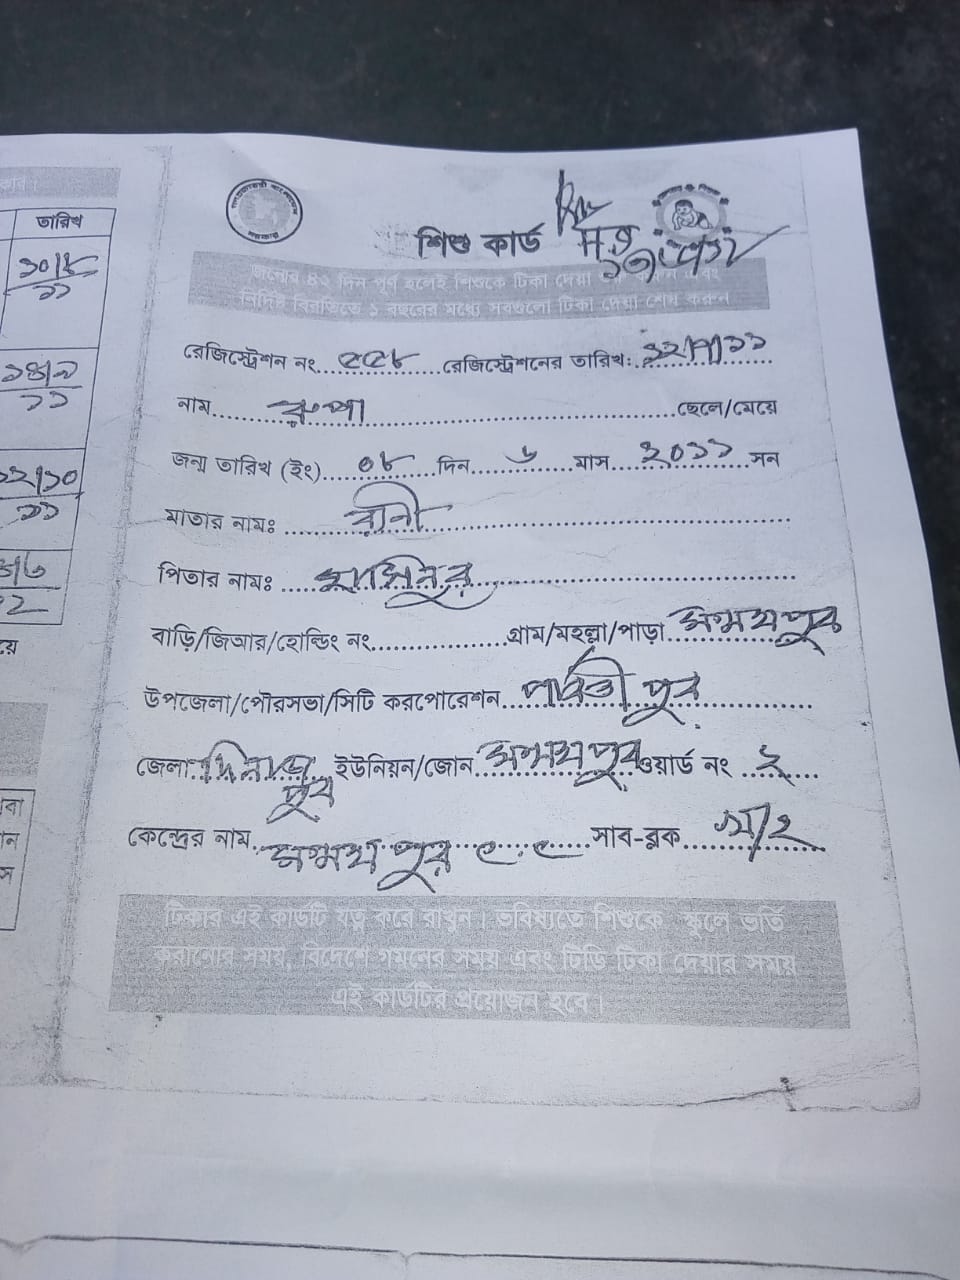 তারিখ
১০/৮
১১
১৪/৯
১১
১২/১০
১১
শিশু কার্ড
জন্মের ৪২ দিন পূর্ণ হলেই শিশুকে টিকা দেয়া শুরু করুন এবং
নির্দিষ্ট বিরতিতে ১ বছরের মধ্যে সবগুলো টিকা দেয়া শেষ করুন
রেজিস্ট্রেশন নং... ৫৫৮ ...রেজিস্ট্রেশনের তারিখ: ১২/৭/১১
নাম...... রুপা ......ছেলে/মেয়ে
জন্ম তারিখ (ইং)... ০৮ ...দিন... ৬ ...মাস... ২০১১ ...সন
মাতার নামঃ ... রানী
পিতার নামঃ ... হাসিনুর
বাড়ি/জিআর/হোল্ডিং নং..................গ্রাম/মহল্লা/পাড়া.. মন্মথপুর
উপজেলা/পৌরসভা/সিটি করপোরেশন.. পার্বতীপুর
জেলা. দিনাজপুর ইউনিয়ন/জোন মন্মথপুর ওয়ার্ড নং ২
কেন্দ্রের নাম. মন্মথপুর সাব-ব্লক...
টিকার এই কার্ডটি যত্ন করে রাখুন। ভবিষ্যতে শিশুকে স্কুলে ভর্তি
করানোর সময়, বিদেশে গমনের সময় এবং টিডি টিকা দেয়ার সময়
এই কার্ডটির প্রয়োজন হবে।